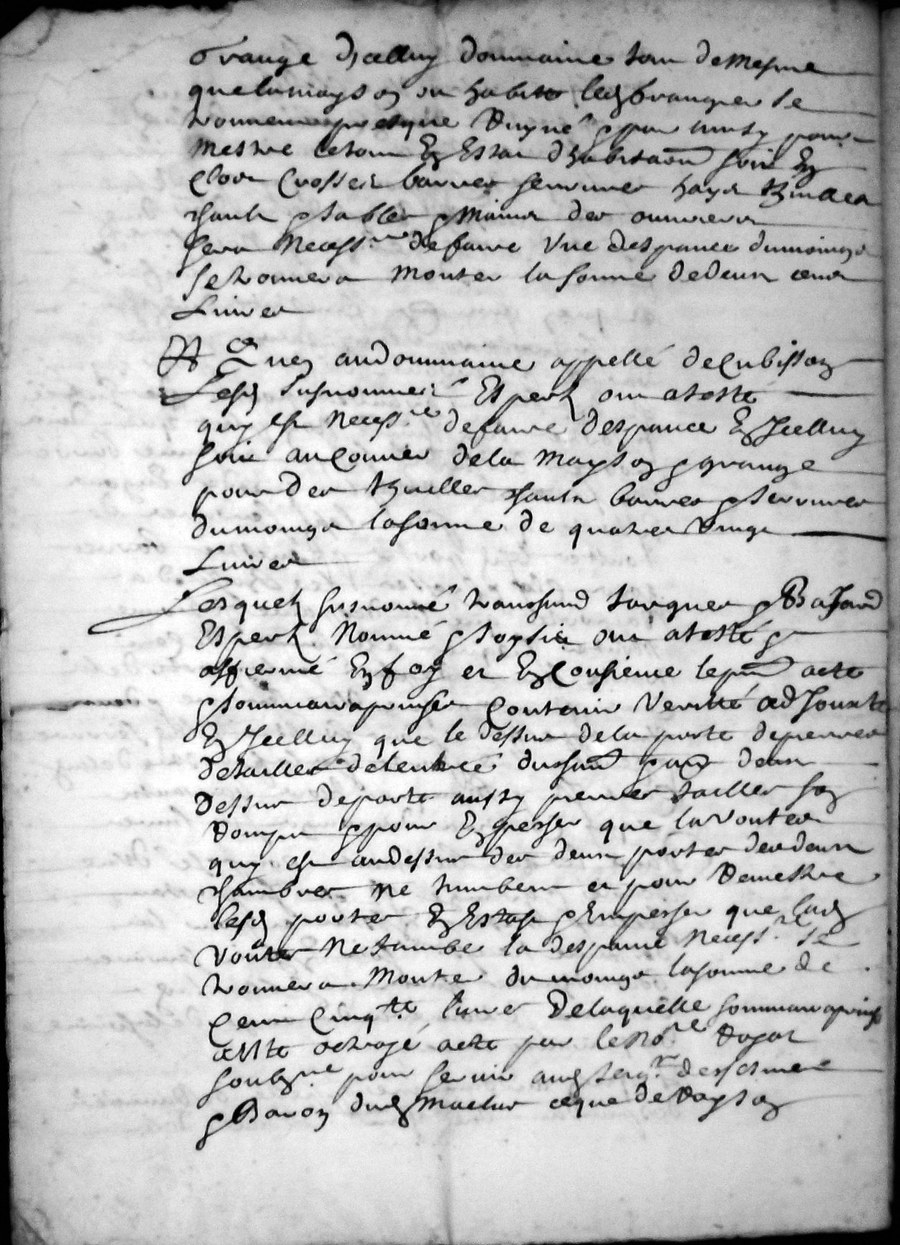 Grange d'jcelluy dommaine tout de mesme
que la mayson ou habite led granger se
trouvent presque Ruyné et par ainsy pour
mettre le tout En Estat d'habitaon soit En
barres serrures
chaulx et sable et Maims des ouvriers
sera necess.re de faire Une despance du moings
se trouvera monter la somme de deux cens
Livres
Et Quen au dommaine appellé de Cubisson
Lesd susnommés Expertz ont atesté
quy est necess.re de faire despance En Jcelluy
soit au Couvert de la mayson et grange
pour des thuilles chaulx barres et serrures
du moings la somme de quatre Vingt
Livres
Lesquelz susnommé et
Expertz Nommé et ont atesté et
affirmé En foy et En Consience le pnt acte
et sommaire aprinse Contenir Veritté adjouxte
En Jcelluy que le dessus de la porte de pierres
de tailles de deux
dessus de porte aussy pierres tailles son
Rompu et pour Empesser que la Voutte
quy est au dessus des deux portes des deux
chambres ne tumbent et pour Remettre
lesd portes En Estat et Empesser que lad
Voutte Ne tumbe la despance necess.re se
trouvera Monter du moings la somme de
Cent Cinq.te livres de laquelle sommaire aprinse
a esté octroyé acte par le No.re Royal
soubz.né pour servir aud seig.r
et Baron dud ce que de Rayson